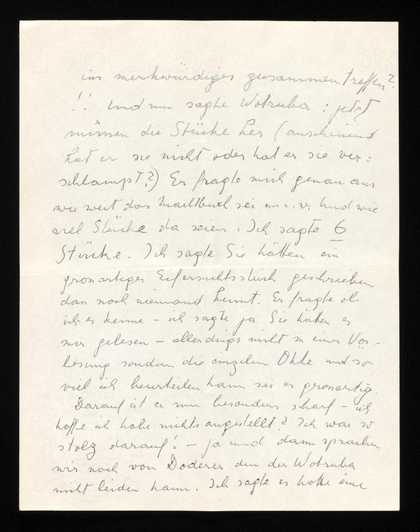 ein merkwürdiges zusammentreffen?
!! Und nun sagte Wotruba: jetzt
müssen die Stücke her (anscheinend
hat er sie nicht oder hat er sie ver:
schlampt?) Er fragte mich genau aus
wie weit das Machtbuch sei u.s.w. und wie
viel Stücke da seien. Ich sagte 6
Stücke. Ich sagte Sie hätten ein
gronartiges Eifersuchtsstück geschrieben
dan noch niemand kennt. Er fragte ob
ich es kenne – ich sagte ja Sie haben es
mir gelesen – allerdings nicht in einer Vor-
lesung sondern die einzelnen und so
viel ich beurteilen kann sei es gronartig
Darauf ist er nun besonders scharf – ich
hoffe ich habe nichts angestellt? Ich war so
stolz darauf! – ja und dann sprachen
wir noch von Doderer den der Wotruba
nicht leiden kann. Ich sagte es hätte eine